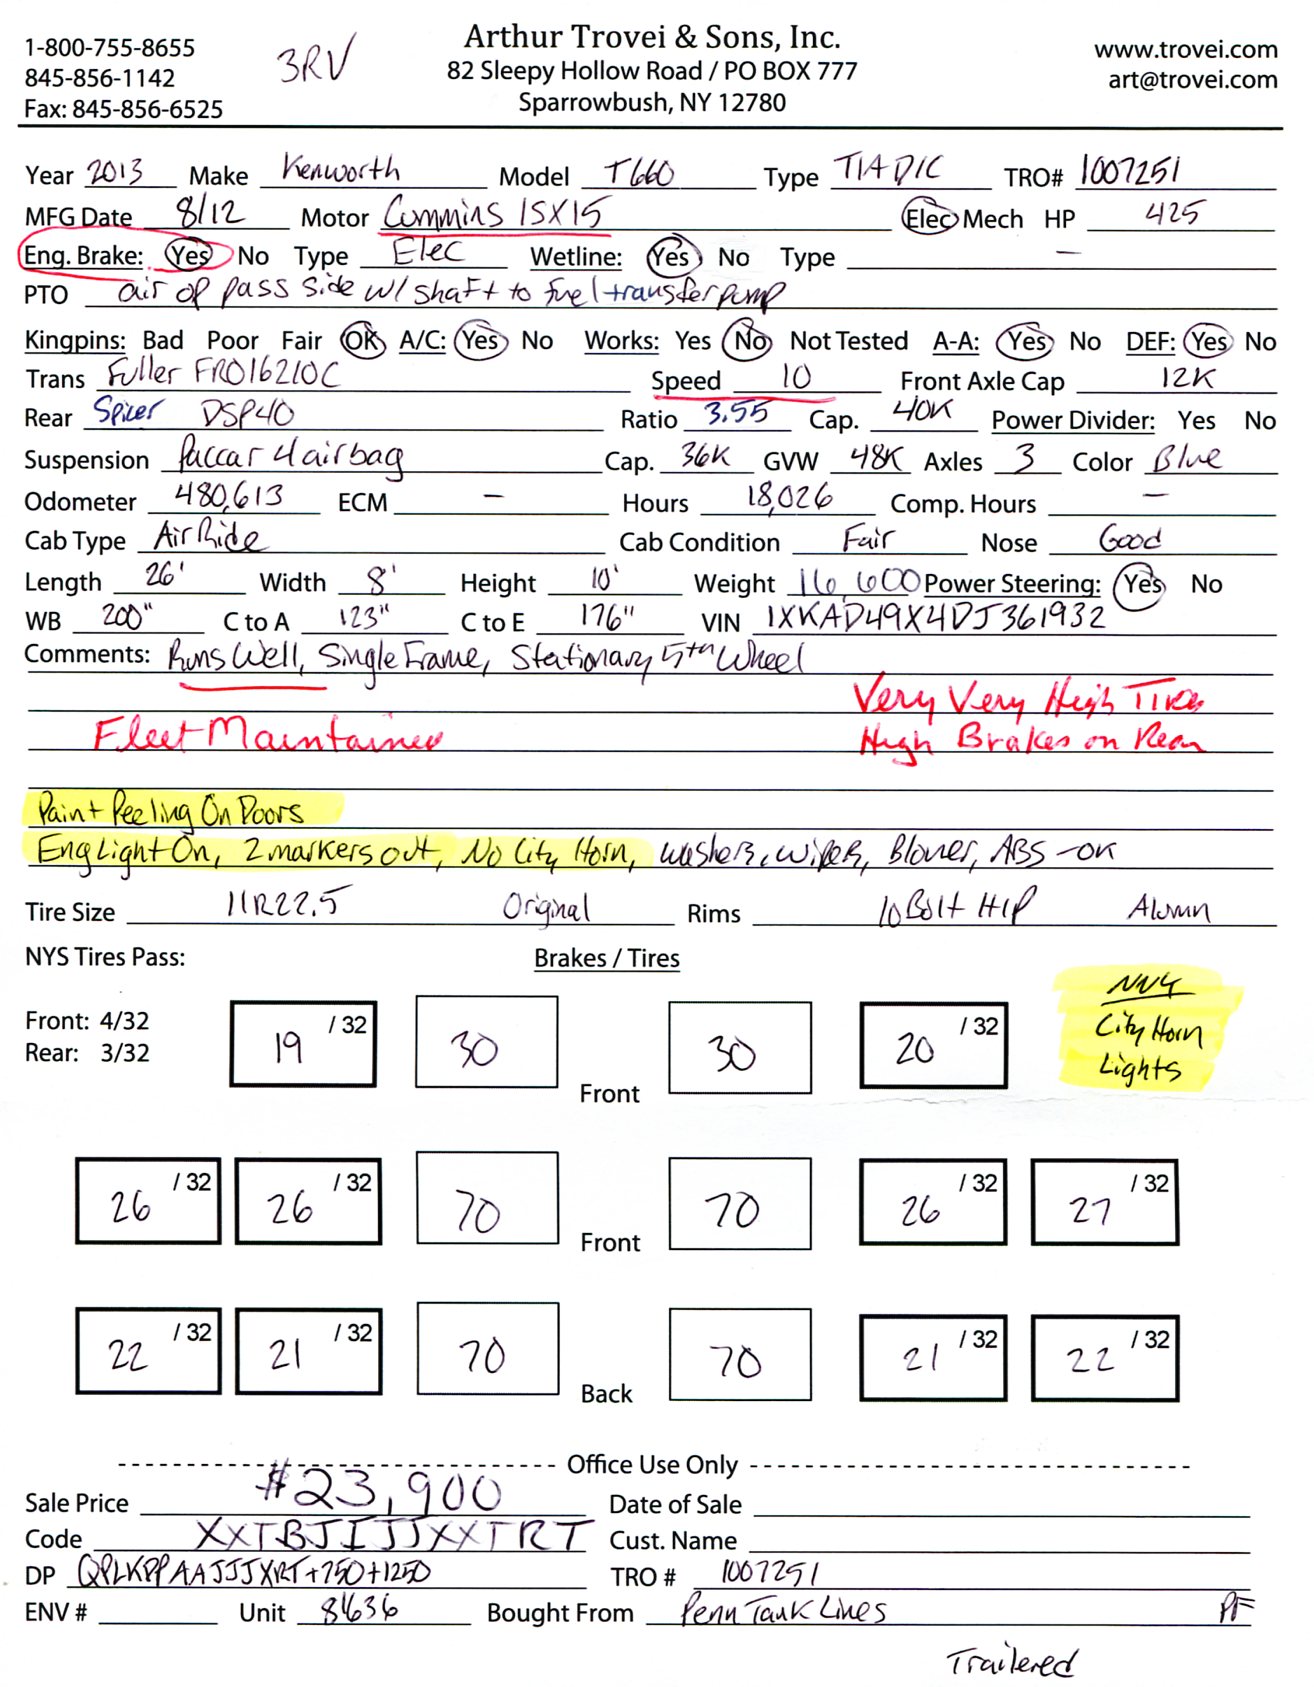 Arthur Trovei & Sons, Inc.
1-800-755-8655 3RV 82 Sleepy Hollow Road / PO BOX 777 www.trovei.com
845-856-1142 Sparrowbush, NY 12780 art@trovei.com
Fax: 845-856-6525
Year 2013 Make Kenworth Model T660 Type T/A D/C TRO# 1007251
MFG Date 8/12 Motor Cummins ISX15 Elec Mech HP 425
Eng. Brake: Yes No Type Elec Wetline: Yes No Type —
PTO air op pass side w/ shaft to fuel transfer pump
Kingpins: Bad Poor Fair OK A/C: Yes No Works: Yes No Not Tested A-A: Yes No DEF: Yes No
Trans Fuller FRO16210C Speed 10 Front Axle Cap 12K
Rear Spicer DSP40 Ratio 3.55 Cap. 40K Power Divider: Yes No
Suspension Paccar 4 airbag Cap. 36K GVW 48K Axles 3 Color Blue
Odometer 480,613 ECM — Hours 18,026 Comp. Hours —
Cab Type Air Ride Cab Condition Fair Nose Good
Length 26' Width 8' Height 10' Weight 16,600 Power Steering: Yes No
WB 200" C to A 123" C to E 176" VIN 1XKAD49X4DJ361932
Comments: Runs Well, Single Frame, Stationary 5th Wheel
Very Very High Tires
Fleet Maintained High Brakes on Rear
Paint Peeling On Doors
Eng Light On, 2 markers out, No City Horn, washers, wipers, Blower, ABS - OK
Tire Size 11R22.5 Original Rims 10 Bolt H/P Alumn
NYS Tires Pass: Brakes / Tires
NYS
City Horn
Lights
Front: 4/32
Rear: 3/32
19 /32 30 Front 30 20 /32
26 /32 26 /32 70 Front 70 26 /32 27 /32
22 /32 21 /32 70 Back 70 21 /32 22 /32
Office Use Only
Sale Price $23,900 Date of Sale
Code XXTBJIJJXXTRT Cust. Name
DP QPLKPPAAJJJXRT+750+1250 TRO # 1007251
ENV # Unit 8636 Bought From Penn Tank Lines PF
Trailered